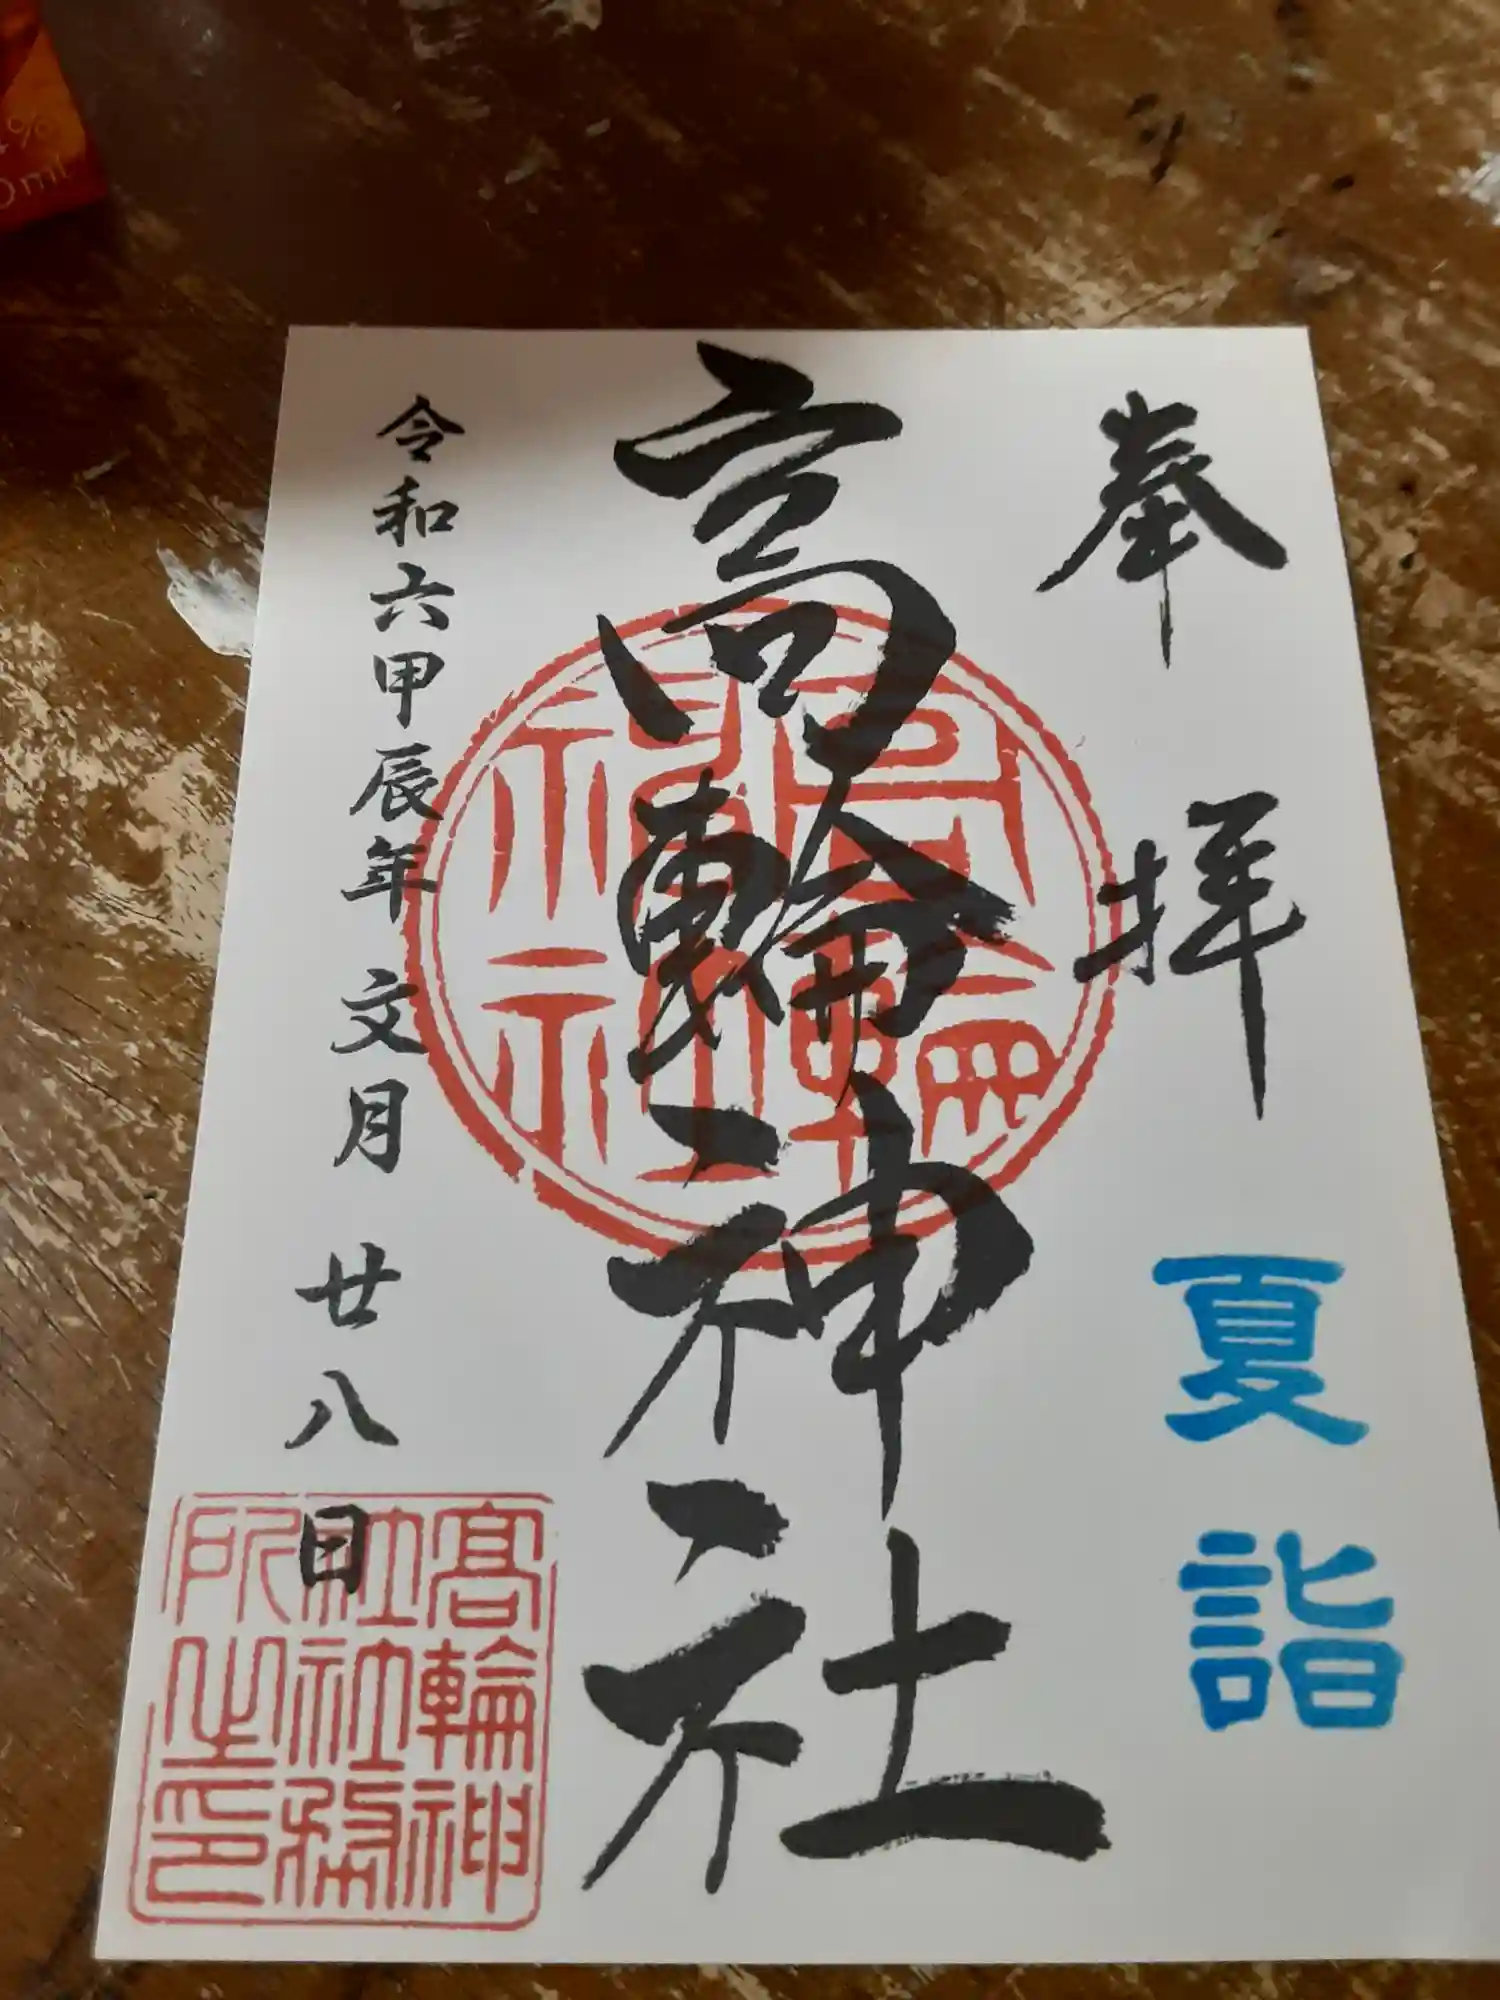 奉拝
夏詣
高輪神社
高輪
神社
令和六甲辰年文月廿八日
高輪神
社社務
所之印
%
0ml